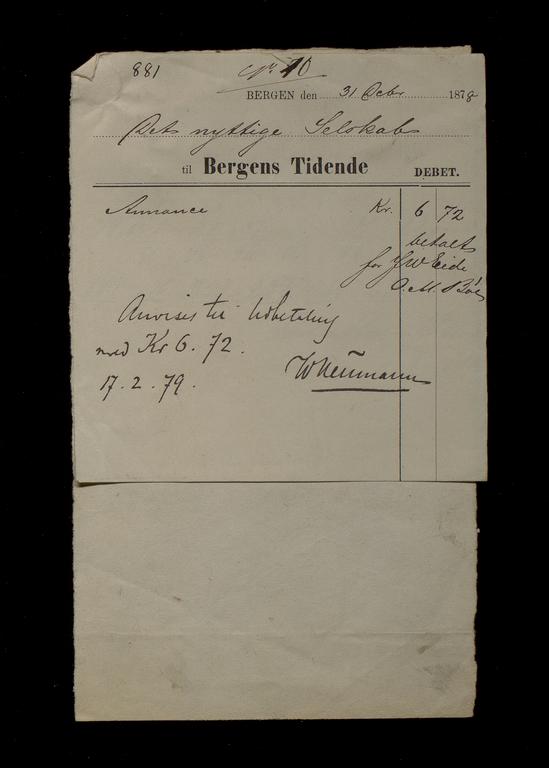 881 No 10
BERGEN den 31 Octbr 1878
Det nyttige Selskab
til Bergens Tidende DEBET.
Annonce Kr. 6 72
betalt
for J W Eide
O. M. Bøe
Anvises til Udbetaling
med Kr 6. 72.
17. 2. 79. WNeumann